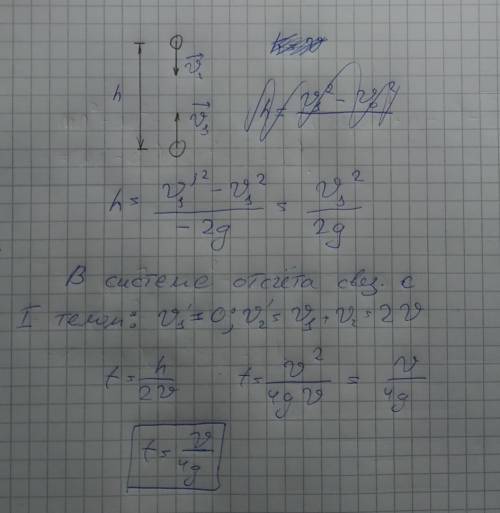 h
v⃗₂
v⃗₁
h = (v₁'² − v₁²)/(−2g) = v₁²/2g
В системе отсчёта связ. с
I телом: v₁' = 0; v₂' = v₁ + v₂ = 2v
t = h/2v   t = v²/4gv = v/4g
t = v/4g